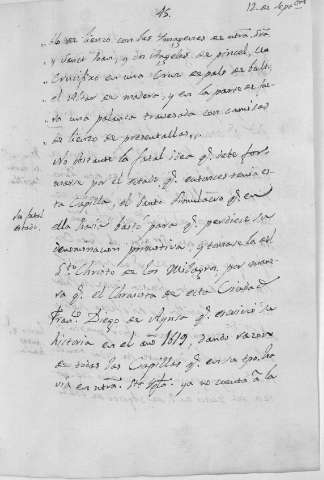 45.
12 de Agosto
„ de lienzo con las Imagenes de ntra. Sra.
„ y Sanct Joan, y dos Angeles de pincel, un
„ Crucifixo en una Cruz de palo de bult.
„ el Altar de madera, y en la parte de fue-
„ ra una palanca travesada con camisas
„ de lienzo de presentallas„.
No obstante la fatal idea q. debe for-
marse por el estado q. entonces tenia es-
ta Capilla, el Santo Simulacro q. en
Su fatal
estado.
ella havia bastó para q. perdiese su
denominacion primitiva, y tomase la del
Sto. Christo de los Milagros, por mane-
ra q. el Chronista de esta Ciudad
Franco. Diego de Aynsa q. escrivió su
historia en el año 1619, dando razon
de todas las Capillas q. en su tpo. ha-
via en ntra. Sta. Iglã. ya no cuenta á la